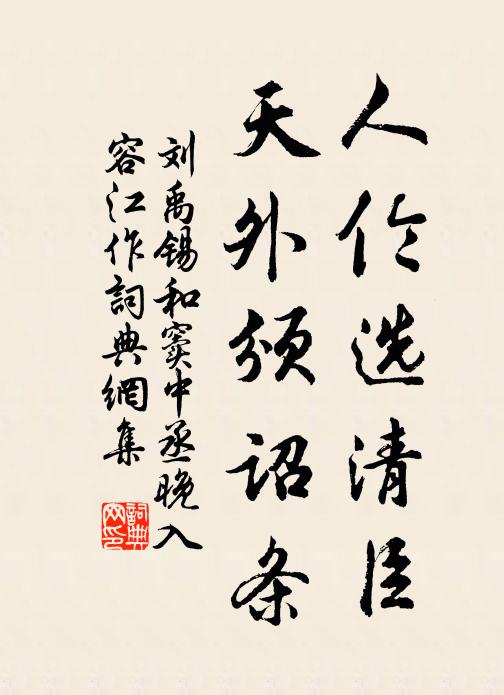 人伦选清臣
天外颁诏条
刘禹锡和窦中丞晚入
容江作詞典網集
詞典
网印